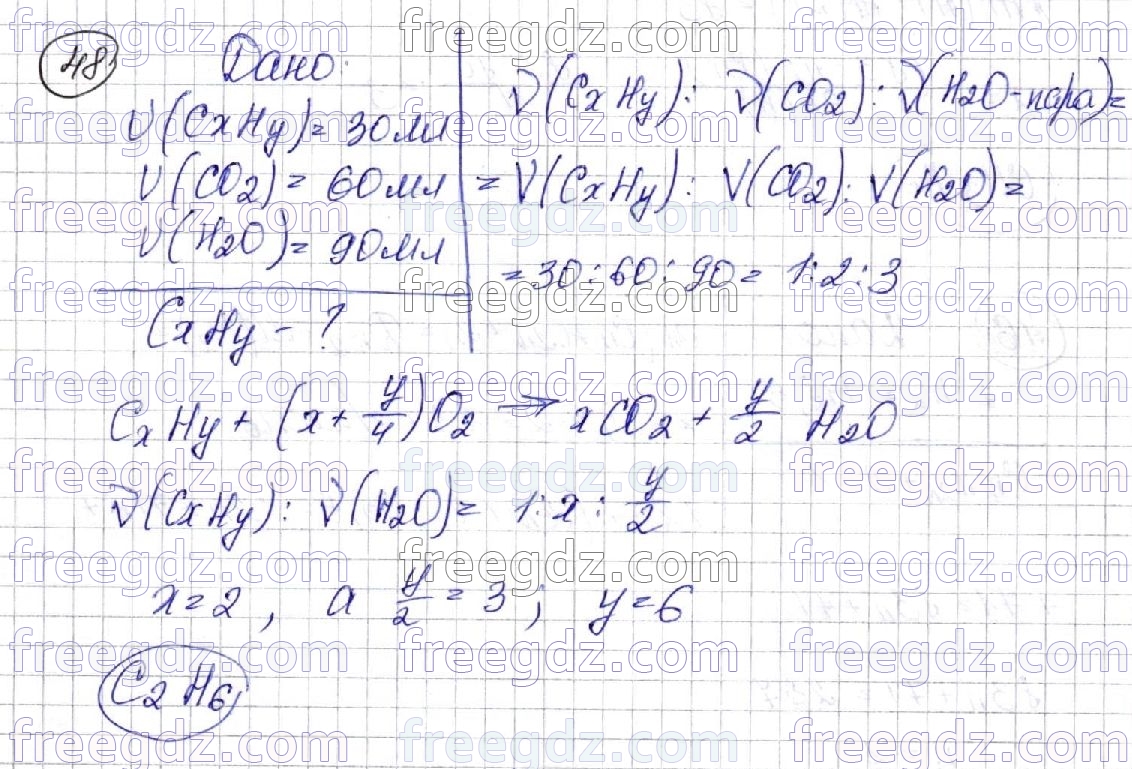 48
Дано:
V(CxHy) = 30 мл
V(CO2) = 60 мл
V(H2O) = 90 мл
CxHy - ?
ν(CxHy) : ν(CO2) : ν(H2O-пара) =
= V(CxHy) : V(CO2) : V(H2O) =
= 30 : 60 : 90 = 1 : 2 : 3
CxHy + (x + y/4)O2 → xCO2 + y/2 H2O
ν(CxHy) : ν(H2O) = 1 : x : y/2
x = 2 , а y/2 = 3 ; y = 6
C2H6
freegdz.com